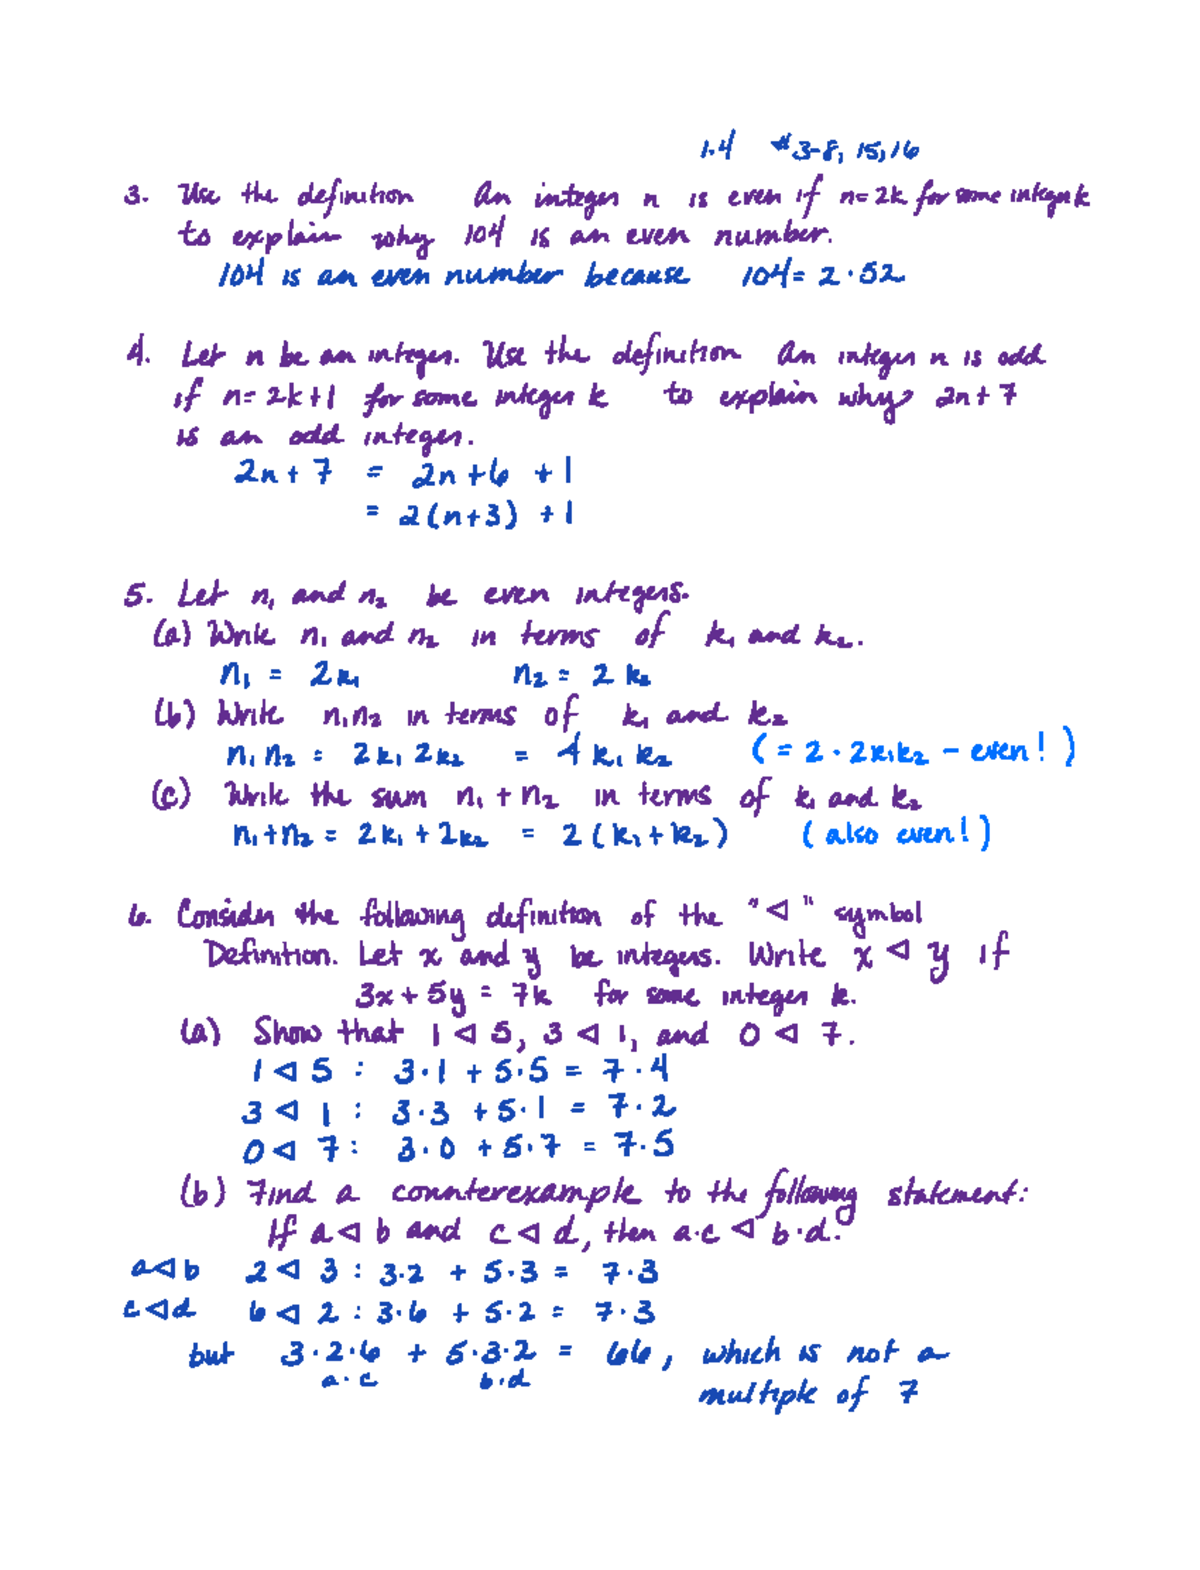 1.4 #3-8, 15, 16
3. Use the definition An integer n is even if n = 2k for some integer k
to explain why 104 is an even number.
104 is an even number because 104 = 2 · 52
4. Let n be an integer. Use the definition An integer n is odd
if n = 2k+1 for some integer k to explain why 2n + 7
is an odd integer.
2n + 7 = 2n + 6 + 1
= 2(n+3) + 1
5. Let n₁ and n₂ be even integers.
(a) Write n₁ and n₂ in terms of k₁ and k₂.
n₁ = 2k₁ n₂ = 2k₂
(b) Write n₁n₂ in terms of k₁ and k₂
n₁n₂ = 2k₁ 2k₂ = 4k₁k₂ (= 2 · 2k₁k₂ – even!)
(c) Write the sum n₁ + n₂ in terms of k₁ and k₂
n₁+n₂ = 2k₁ + 2k₂ = 2(k₁ + k₂) (also even!)
6. Consider the following definition of the "◁" symbol
Definition. Let x and y be integers. Write x ◁ y if
3x + 5y = 7k for some integer k.
(a) Show that 1 ◁ 5, 3 ◁ 1, and 0 ◁ 7.
1 ◁ 5 : 3·1 + 5·5 = 7·4
3 ◁ 1 : 3·3 + 5·1 = 7·2
0 ◁ 7 : 3·0 + 5·7 = 7·5
(b) Find a counterexample to the following statement:
If a ◁ b and c ◁ d, then a·c ◁ b·d.
a◁b 2 ◁ 3 : 3·2 + 5·3 = 7·3
c◁d 6 ◁ 2 : 3·6 + 5·2 = 7·3
but 3·2·6 + 5·3·2 = 66, which is not a
a·c b·d multiple of 7